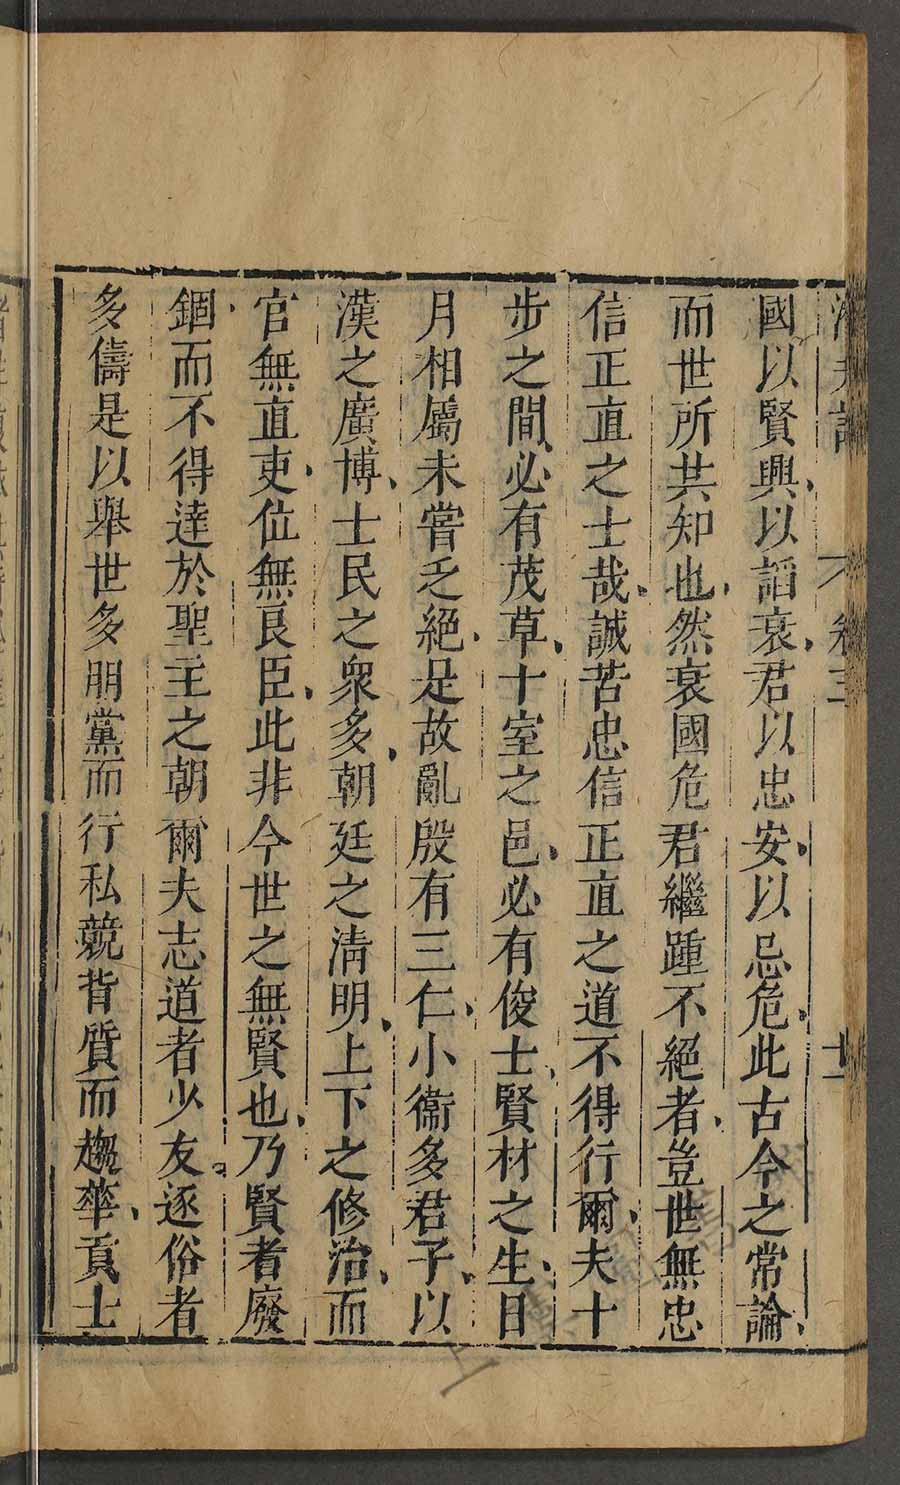 潛夫論 卷二 十一
國以賢興以謟衰君以忠安以忌危此古今之常論
而世所共知也然衰國危君繼踵不絕者豈世無忠
信正直之士哉誠苦忠信正直之道不得行爾夫十
步之間必有茂草十室之邑必有俊士賢材之生日
月相屬未嘗乏絕是故亂殷有三仁小衞多君子以
漢之廣博士民之衆多朝廷之淸明上下之修治而
官無直吏位無良臣此非今世之無賢也乃賢者廢
錮而不得達於聖主之朝爾夫志道者少友逐俗者
多儔是以舉世多朋黨而行私競背質而趨華貢士